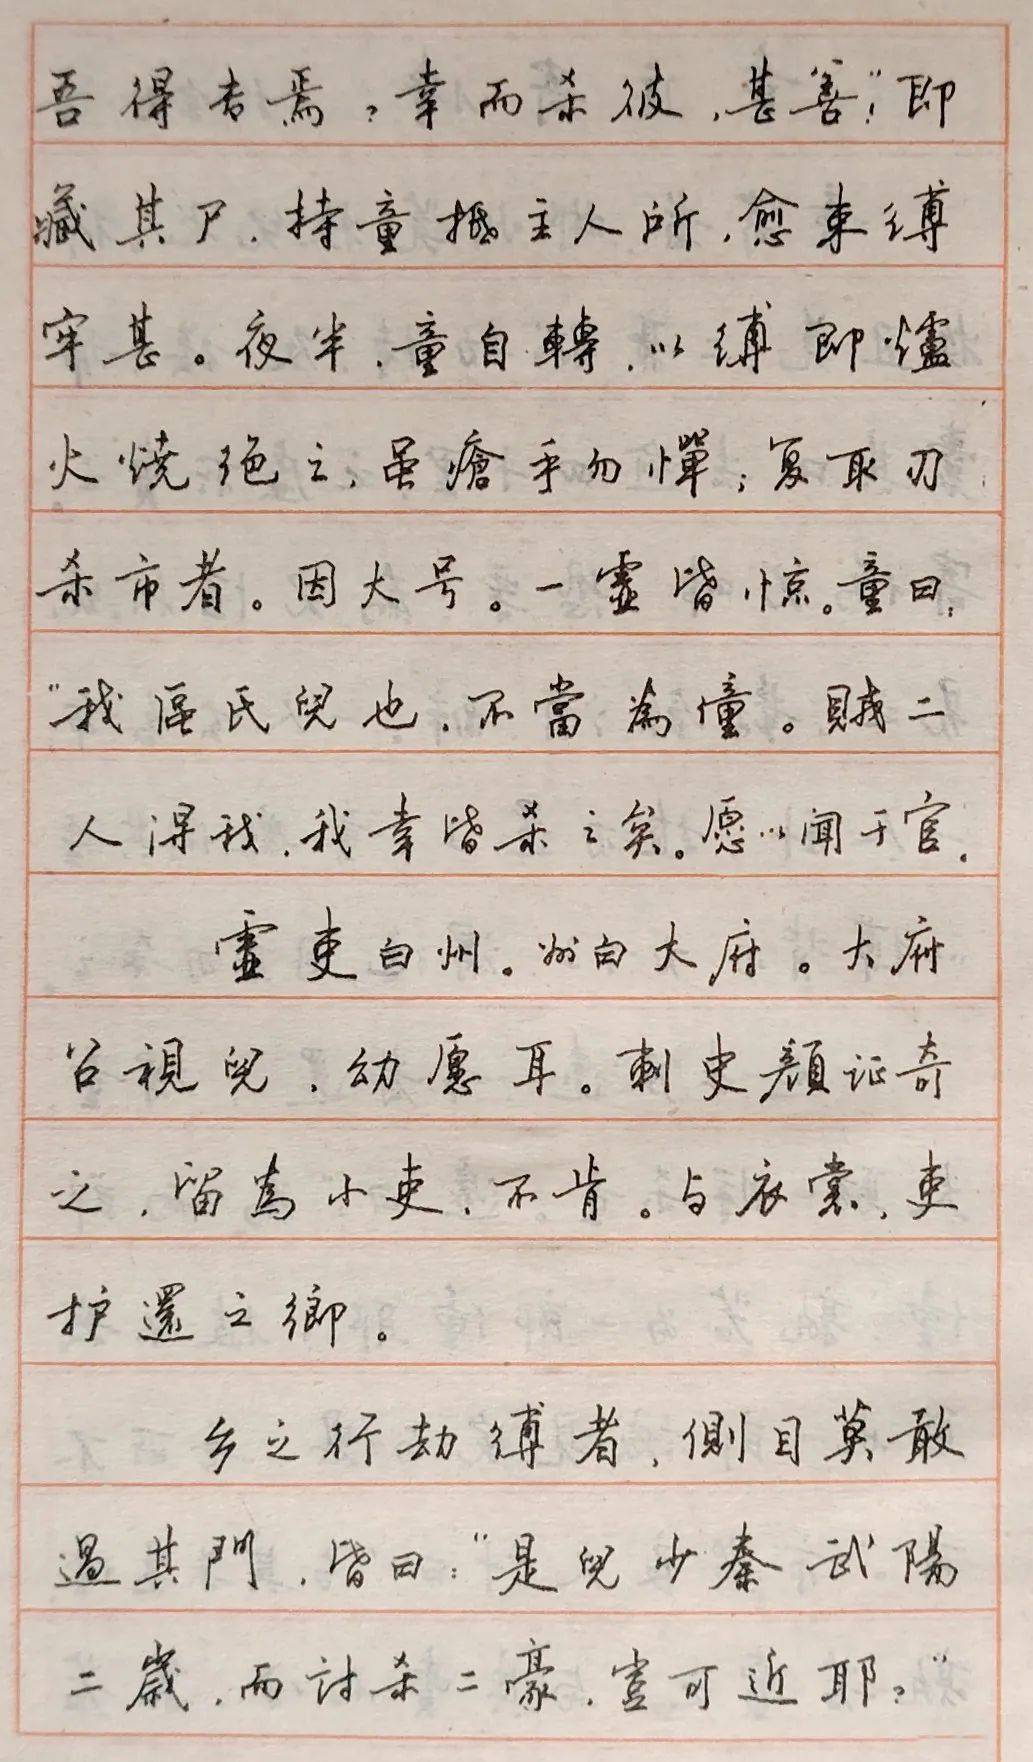 吾得专焉？幸而杀彼，甚善！”即
藏其尸，持童抵主人所，愈束缚
牢甚。夜半，童自轉，以缚即爐
火燒绝之，虽瘡手勿憚；复取刃
杀市者。因大号。一虚皆惊。童曰：
“我區氏兒也，不當為僮。賊二
人得我，我幸皆杀之矣。愿以闻于官。
虚吏白州。州白大府。大府
召視兒，幼愿耳。刺史顔证奇
之，留為小吏，不肯。与衣裳，吏
护還之鄉。
乡之行劫缚者，側目莫敢
過其門，皆曰：“是兒少秦武陽
二歲，而討杀二豪，豈可近耶？”